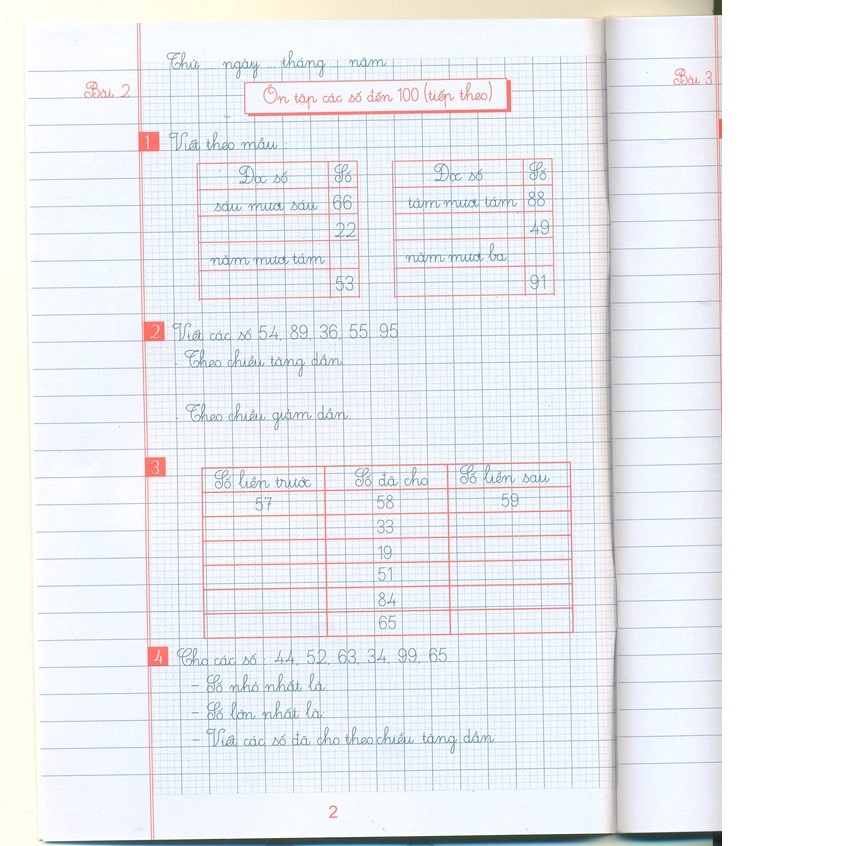 Thứ ngày tháng năm
Bài 2
Ôn tập các số đến 100 (tiếp theo)
1 Viết theo mẫu :
Đọc số Số Đọc số Số
sáu mươi sáu 66 tám mươi tám 88
22 49
năm mươi tám năm mươi ba
53 91
2 Viết các số 54, 89, 36, 55, 95
- Theo chiều tăng dần
- Theo chiều giảm dần
3
Số liền trước Số đã cho Số liền sau
57 58 59
33
19
51
84
65
4 Cho các số : 44, 52, 63, 34, 99, 65
- Số nhỏ nhất là:
- Số lớn nhất là:
- Viết các số đã cho theo chiều tăng dần
2
Bài 3